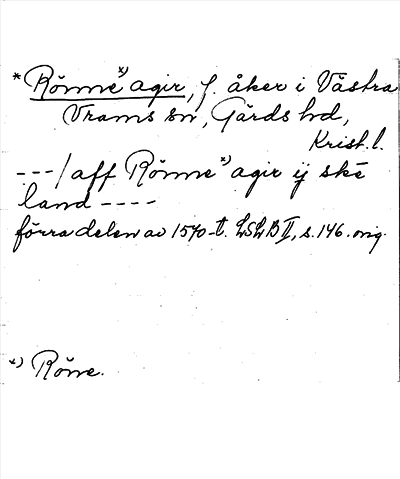 * Röme *) agir, f. åker i Västra
Vrams sn, Gärds hd,
Krist. l.
---/aff Rŏme *) agir ij skē
land ----
förra delen av 1570-t. LSLB II, s. 146. orig.
*) Rŏme.